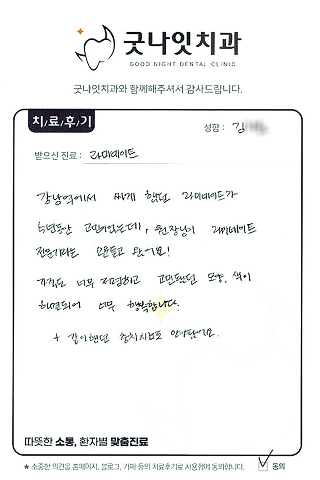 굿나잇치과
GOOD NIGHT DENTAL CLINIC
굿나잇치과와 함께해주셔서 감사드립니다.
치/료/후/기
성함 : 김
받으신 진료 : 라미네이트
강남역에서 싸게 했던 라미네이트가
수년동안 고민이었는데, 원장님이 라미네이트
전문가라는 소문듣고 왔어요!
가격도 너무 저렴하고 고민했던 모양, 색이
해결되어 너무 행복합니다.
+ 같이했던 충치치료도 안아팠어요.
따뜻한 소통, 환자별 맞춤진료
★ 소중한 의견을 홈페이지, 블로그, 카페 등의 치료후기로 사용함에 동의합니다.
동의